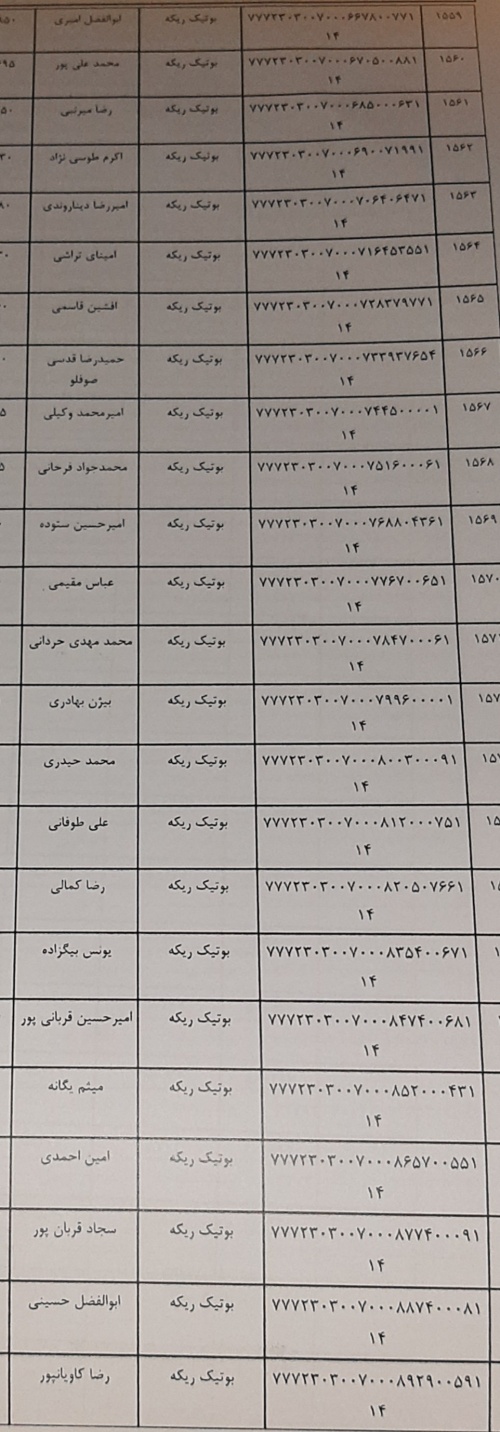 ۱۵۵۹ ۷۷۷۲۳۰۳۰۰۷۰۰۰۶۶۷۸۰۰۷۷۱ بوتیک ریکه ابوالفضل امیری
۱۴
۱۵۶۰ ۷۷۷۲۳۰۳۰۰۷۰۰۰۶۷۰۵۰۰۸۸۱ بوتیک ریکه محمد علی پور
۱۴
۱۵۶۱ ۷۷۷۲۳۰۳۰۰۷۰۰۰۶۸۵۰۰۰۶۳۱ بوتیک ریکه رضا میرنبی
۱۴
۱۵۶۲ ۷۷۷۲۳۰۳۰۰۷۰۰۰۶۹۰۰۷۱۹۹۱ بوتیک ریکه اکرم طوسی نژاد
۱۴
۱۵۶۳ ۷۷۷۲۳۰۳۰۰۷۰۰۰۷۰۶۴۰۶۴۷۱ بوتیک ریکه امیررضا دیناروندی
۱۴
۱۵۶۴ ۷۷۷۲۳۰۳۰۰۷۰۰۰۷۱۶۴۵۳۵۵۱ بوتیک ریکه امینای تراشی
۱۴
۱۵۶۵ ۷۷۷۲۳۰۳۰۰۷۰۰۰۷۲۸۳۷۹۷۷۱ بوتیک ریکه افشین قاسمی
۱۴
۱۵۶۶ ۷۷۷۲۳۰۳۰۰۷۰۰۰۷۳۳۹۳۷۶۵۴ بوتیک ریکه حمیدرضا قدسی
۱۴ صوفلو
۱۵۶۷ ۷۷۷۲۳۰۳۰۰۷۰۰۰۷۴۴۵۰۰۰۰۱ بوتیک ریکه امیرمحمد وکیلی
۱۴
۱۵۶۸ ۷۷۷۲۳۰۳۰۰۷۰۰۰۷۵۱۶۰۰۰۶۱ بوتیک ریکه محمدجواد فرحانی
۱۴
۱۵۶۹ ۷۷۷۲۳۰۳۰۰۷۰۰۰۷۶۸۸۰۴۳۶۱ بوتیک ریکه امیرحسین ستوده
۱۴
۱۵۷۰ ۷۷۷۲۳۰۳۰۰۷۰۰۰۷۷۶۷۰۰۶۵۱ بوتیک ریکه عباس مقیمی
۱۴
۱۵۷ ۷۷۷۲۳۰۳۰۰۷۰۰۰۷۸۴۷۰۰۰۶۱ بوتیک ریکه محمد مهدی حردانی
۱۴
۱۵۷ ۷۷۷۲۳۰۳۰۰۷۰۰۰۷۹۹۶۰۰۰۰۱ بوتیک ریکه بیژن بهادری
۱۴
۷۷۷۲۳۰۳۰۰۷۰۰۰۸۰۰۳۰۰۰۹۱ بوتیک ریکه محمد حیدری
۱۴
۷۷۷۲۳۰۳۰۰۷۰۰۰۸۱۲۰۰۰۷۵۱ بوتیک ریکه علی طوفانی
۱۴
۷۷۷۲۳۰۳۰۰۷۰۰۰۸۲۰۵۰۷۶۶۱ بوتیک ریکه رضا کمالی
۱۴
۷۷۷۲۳۰۳۰۰۷۰۰۰۸۳۵۴۰۰۶۷۱ بوتیک ریکه یونس بیگزاده
۱۴
۷۷۷۲۳۰۳۰۰۷۰۰۰۸۴۷۴۰۰۶۸۱ بوتیک ریکه امیرحسین قربانی پور
۱۴
۷۷۷۲۳۰۳۰۰۷۰۰۰۸۵۲۰۰۰۴۳۱ بوتیک ریکه میثم یگانه
۱۴
۷۷۷۲۳۰۳۰۰۷۰۰۰۸۶۵۷۰۰۵۵۱ بوتیک ریکه امین احمدی
۱۴
۷۷۷۲۳۰۳۰۰۷۰۰۰۸۷۷۴۰۰۰۹۱ بوتیک ریکه سجاد قربان پور
۱۴
۷۷۷۲۳۰۳۰۰۷۰۰۰۸۸۷۴۰۰۰۸۱ بوتیک ریکه ابوالفضل حسینی
۱۴
۷۷۷۲۳۰۳۰۰۷۰۰۰۸۹۲۹۰۰۵۹۱ بوتیک ریکه رضا کاویانپور
۱۴